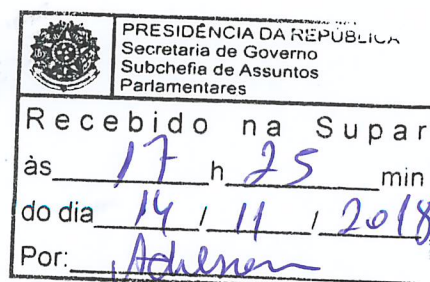 PRESIDÊNCIA DA REPÚBLICA
Secretaria de Governo
Subchefia de Assuntos
Parlamentares
Recebido na Supar
às 17 h 25 min
do dia 14 / 11 / 2018
Por: